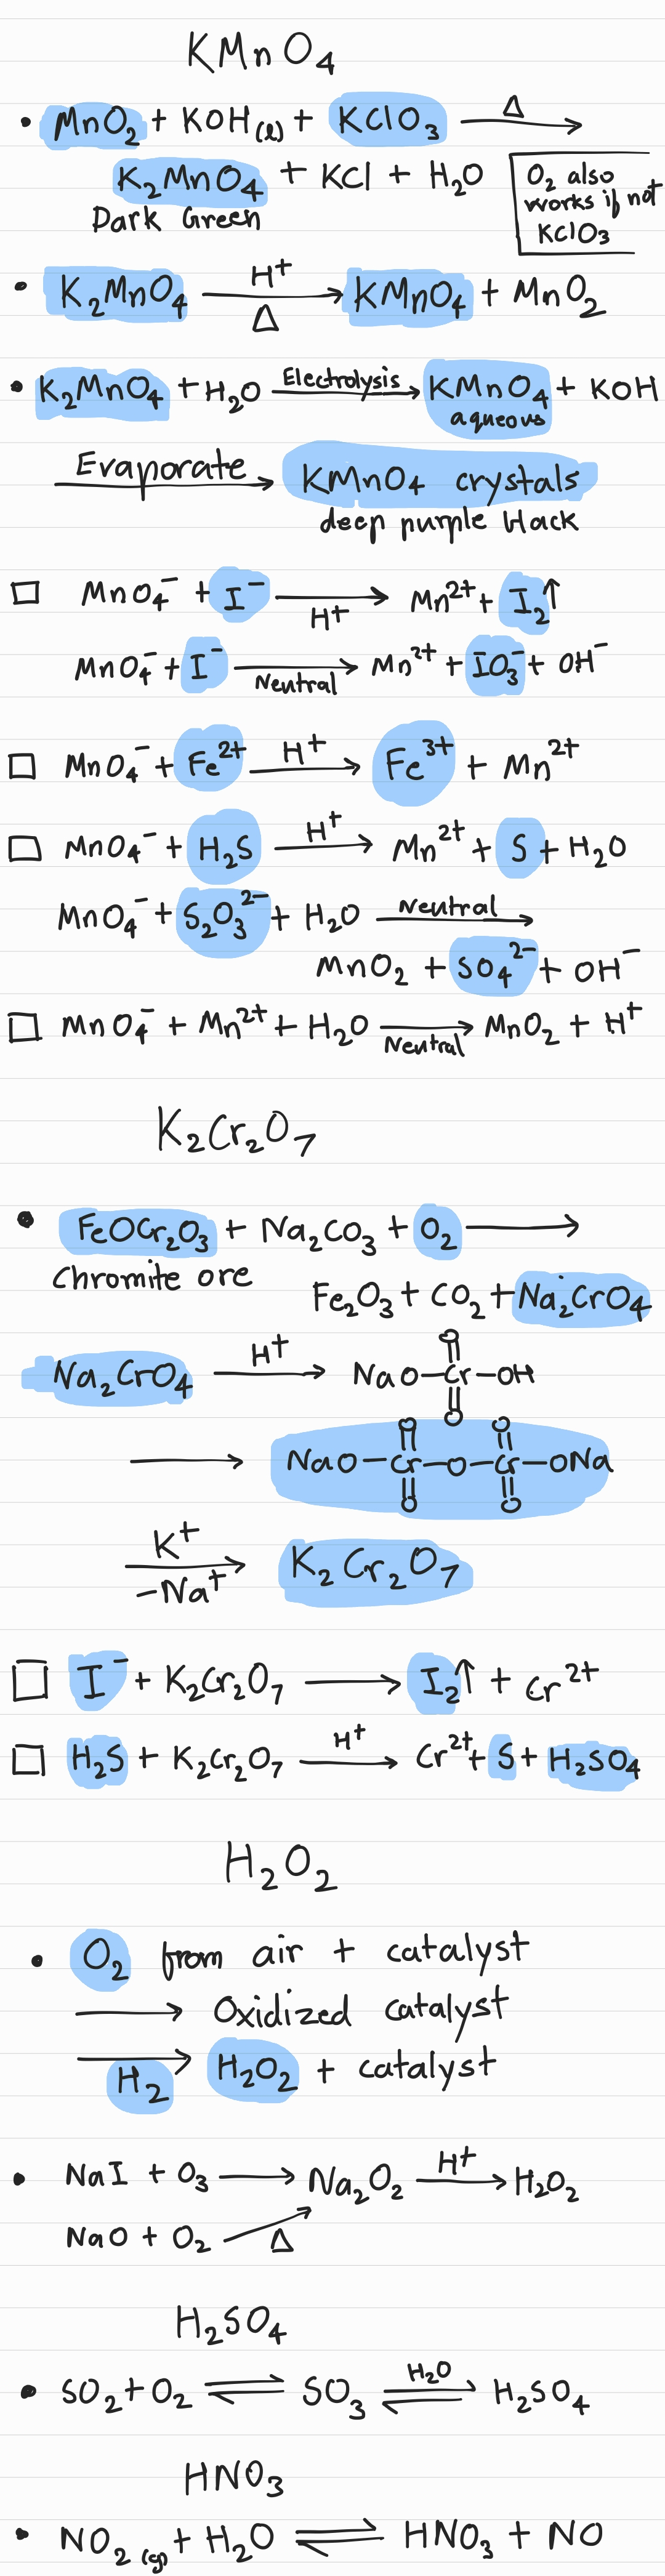 KMnO₄
• MnO₂ + KOH(l) + KClO₃ —Δ→
K₂MnO₄ + KCl + H₂O
Dark Green
O₂ also
works if not
KClO₃
• K₂MnO₄ —H⁺/Δ→ KMnO₄ + MnO₂
• K₂MnO₄ + H₂O —Electrolysis→ KMnO₄ + KOH
aqueous
—Evaporate→ KMnO₄ crystals
deep purple black
□ MnO₄⁻ + I⁻ —H⁺→ Mn²⁺ + I₂↑
MnO₄⁻ + I⁻ —Neutral→ Mn²⁺ + IO₃⁻ + OH⁻
□ MnO₄⁻ + Fe²⁺ —H⁺→ Fe³⁺ + Mn²⁺
□ MnO₄⁻ + H₂S —H⁺→ Mn²⁺ + S + H₂O
MnO₄⁻ + S₂O₃²⁻ + H₂O —Neutral→
MnO₂ + SO₄²⁻ + OH⁻
□ MnO₄⁻ + Mn²⁺ + H₂O —Neutral→ MnO₂ + H⁺
K₂Cr₂O₇
• FeOCr₂O₃ + Na₂CO₃ + O₂ →
Chromite ore
Fe₂O₃ + CO₂ + Na₂CrO₄
Na₂CrO₄ —H⁺→ NaO–Cr(=O)(=O)–OH
→ NaO–Cr(=O)(=O)–O–Cr(=O)(=O)–ONa
—K⁺/-Na⁺→ K₂Cr₂O₇
□ I⁻ + K₂Cr₂O₇ → I₂↑ + Cr²⁺
□ H₂S + K₂Cr₂O₇ —H⁺→ Cr²⁺ + S + H₂SO₄
H₂O₂
• O₂ from air + catalyst
→ Oxidized catalyst
—H₂→ H₂O₂ + catalyst
• NaI + O₃ → Na₂O₂ —H⁺→ H₂O₂
NaO + O₂ —Δ↗
H₂SO₄
• SO₂ + O₂ ⇌ SO₃ ⇌ (H₂O) H₂SO₄
HNO₃
• NO₂(g) + H₂O ⇌ HNO₃ + NO